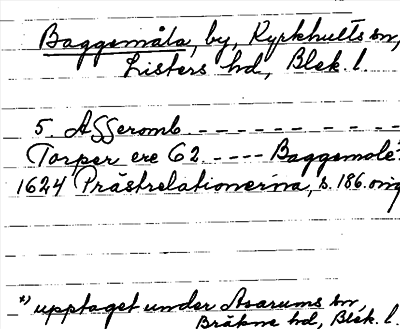 Baggemåla, by, Kyrkhults sn,
Listers hd, Blek. l.
5. Asseromb - - - - - - - - -
Torper ere 62 - - - - Baggemole*)
1624 Prästrelationerna, s. 186. orig
*) upptaget under Asarums sn,
Bräkne hd, Blek. l.